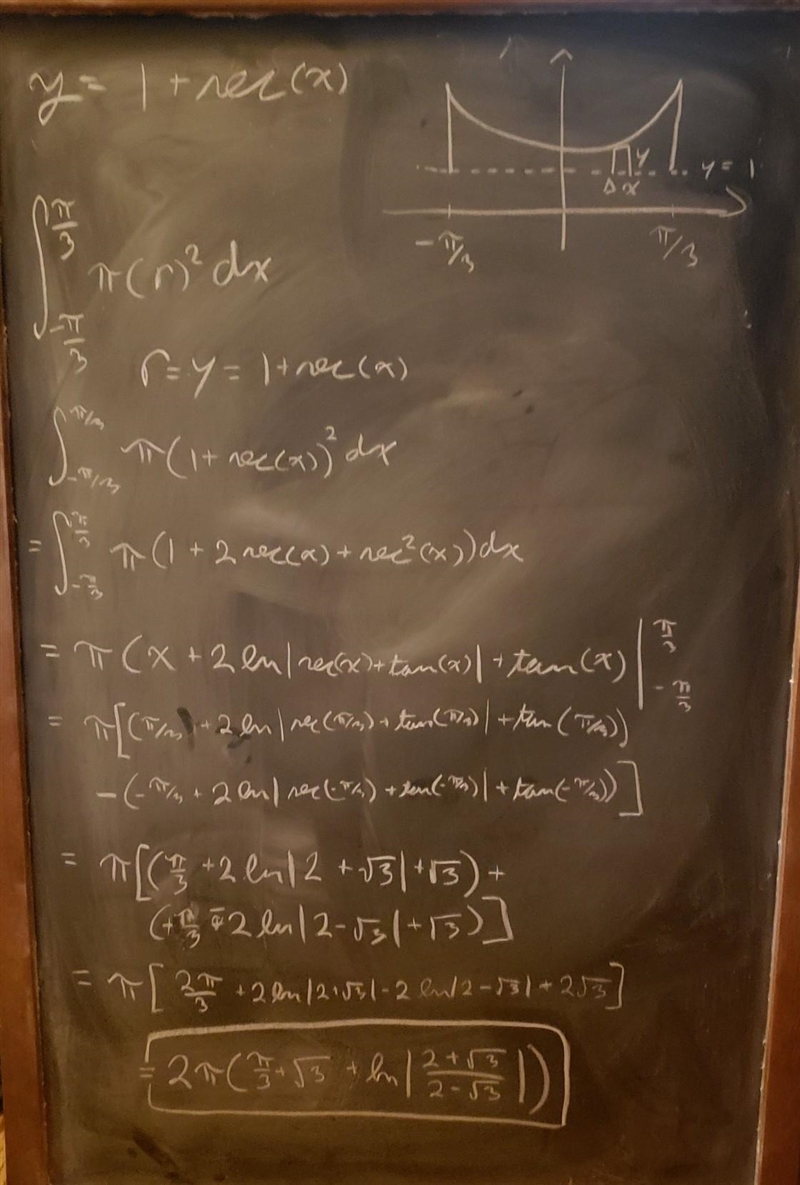 y = 1 + sec(x)
y
y = 1
Δx
-π/3
π/3
∫_{-π/3}^{π/3} π(r)² dx
r = y = 1 + sec(x)
∫_{-π/3}^{π/3} π(1 + sec(x))² dx
= ∫_{-π/3}^{π/3} π(1 + 2 sec(x) + sec²(x)) dx
= π(x + 2 ln|sec(x) + tan(x)| + tan(x) |_{-π/3}^{π/3}
= π[(π/3) + 2 ln|sec(π/3) + tan(π/3)| + tan(π/3))
-(-π/3 + 2 ln|sec(-π/3) + tan(-π/3)| + tan(-π/3))]
= π[(π/3 + 2 ln|2 + √3| + √3) +
(+π/3 - 2 ln|2 - √3| + √3)]
= π[2π/3 + 2 ln|2 + √3| - 2 ln|2 - √3| + 2√3]
= 2π(π/3 + √3 + ln|(2 + √3)/(2 - √3)|)